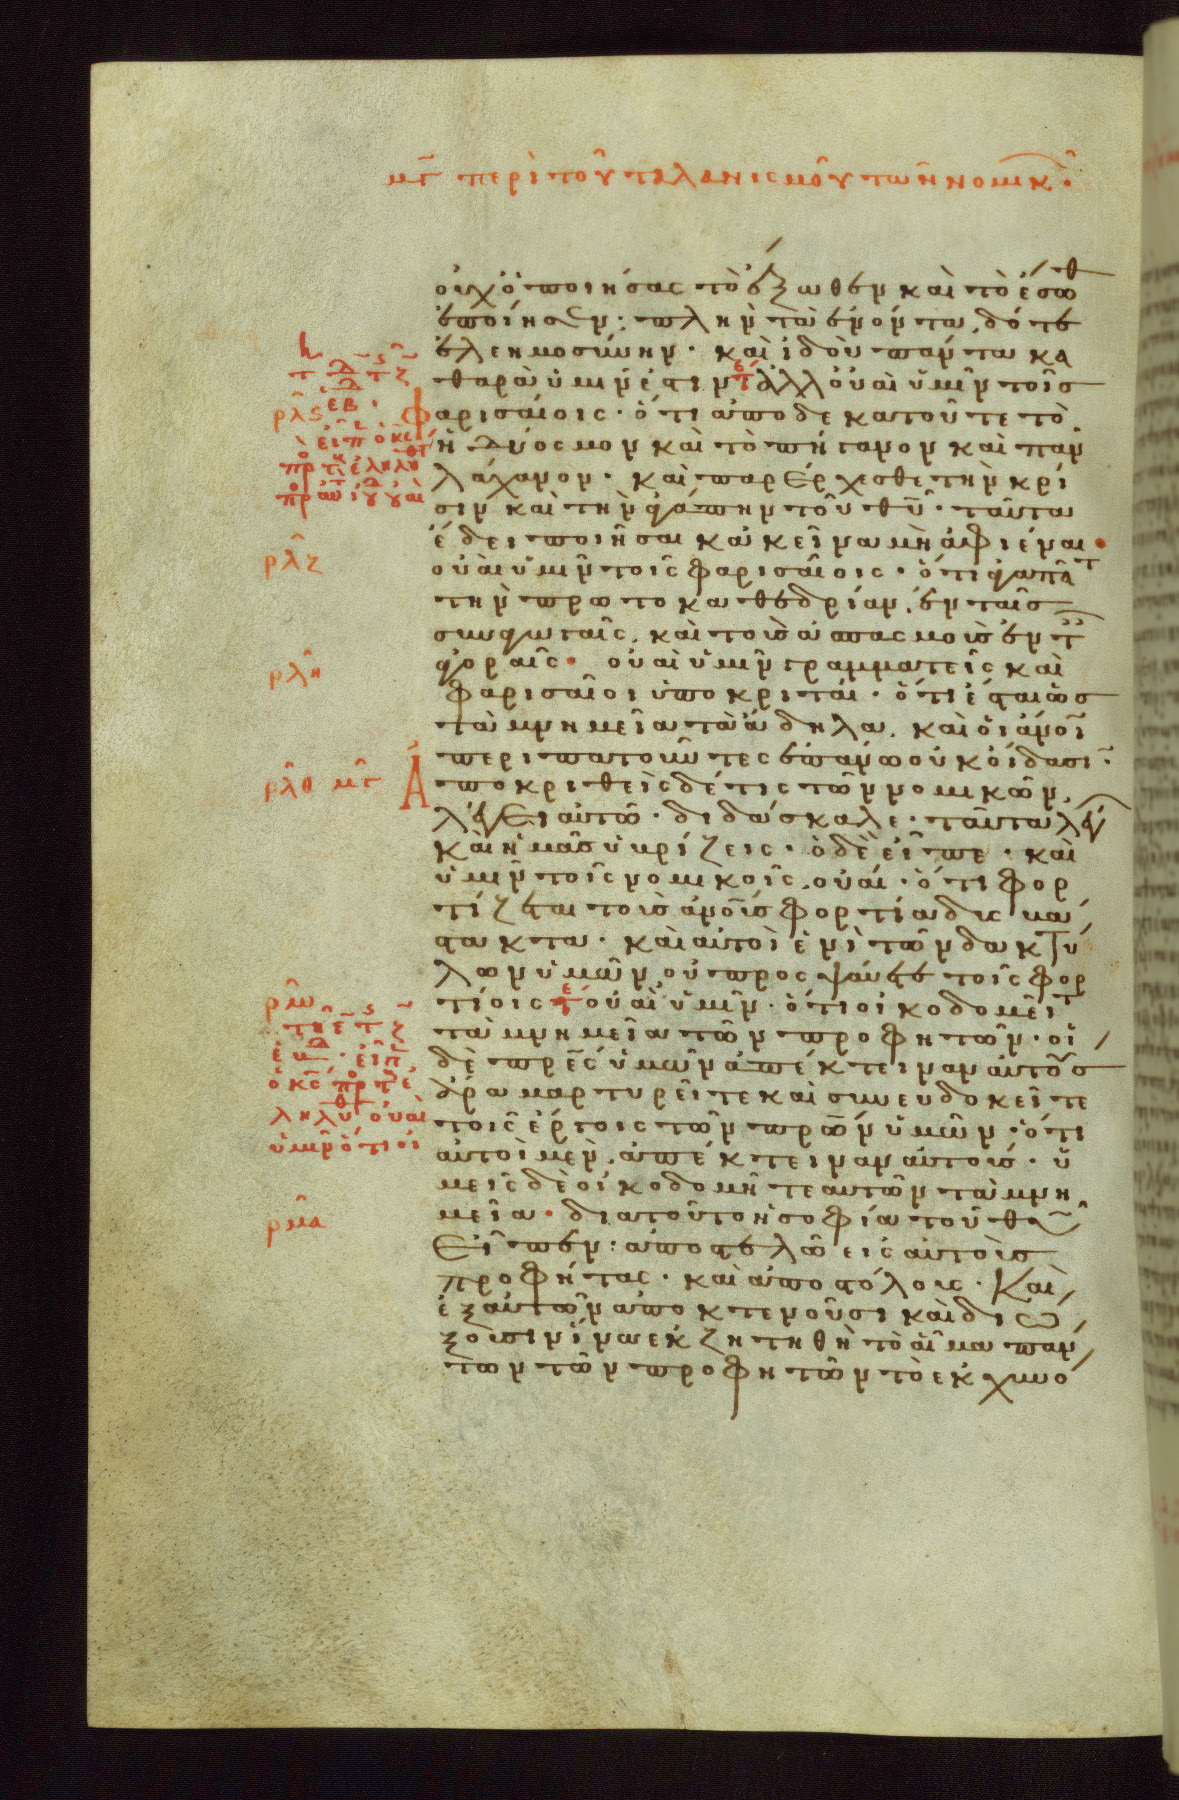 μγ περὶ τοῦ ταλανισμοῦ τῶν νομικ
οὐχ ὁ ποιήσας τὸ ἔξωθεν καὶ τὸ ἔσωθ
ἐποίησεν; πλὴν τὰ ἐνόντα, δότε
ἐλεημοσύνην· καὶ ἰδοὺ πάντα κα
θαρὰ ὑμῖν ἐστιν ἀλλ' οὐαὶ ὑμῖν τοῖς
ρλς Φαρισαίοις· ὅτι ἀποδεκατοῦτε τὸ
ἡδύοσμον καὶ τὸ πήγανον καὶ πᾶν
λάχανον· καὶ παρέρχεσθε τὴν κρί
σιν καὶ τὴν ἀγάπην τοῦ θυ· ταῦτα
ἔδει ποιῆσαι κἀκεῖνα μὴ ἀφιέναι·
ρλζ οὐαὶ ὑμῖν τοῖς φαρισαίοις· ὅτι ἀγαπᾶτ
τὴν πρωτοκαθεδρίαν, ἐν ταῖς
συναγωγαῖς, καὶ τοὺς ἀσπασμοὺς ἐν τ
ρλη ἀγοραῖς· οὐαὶ ὑμῖν γραμματεῖς καὶ
φαρισαῖοι ὑποκριταί· ὅτι ἐστὲ ὡς
τὰ μνημεῖα τὰ ἄδηλα, καὶ οἱ ἀνοι
περιπατοῦντες ἐπάνω οὐκ οἴδασι·
ρλθ μγ Ἀποκριθεὶς δέ τις τῶν νομικῶν,
λέγει αὐτῷ· διδάσκαλε· ταῦτα λέγ
καὶ ἡμᾶς ὑβρίζεις· ὁ δὲ εἶπε· καὶ
ὑμῖν τοῖς νομικοῖς, οὐαί· ὅτι φορ
τίζεται τοὺς ἀνοις φορτία δυσβά
στακτα· καὶ αὐτοὶ ἑνὶ τῶν δακτύ
λων ὑμῶν οὐ προσψαύετε τοῖς φορ
ρμ τίοις οὐαὶ ὑμῖν· ὅτι οἰκοδομεῖτ
τὰ μνημεῖα τῶν προφητῶν· οἱ
δὲ πρες ὑμῶν ἀπέκτειναν αὐτούς
ἄρα μαρτυρεῖτε καὶ συνευδοκεῖτε
τοῖς ἔργοις τῶν πρων ὑμῶν· ὅτι
αὐτοὶ μὲν, ἀπέκτειναν αὐτούς· ὑ
μεῖς δὲ οἰκοδομῆτε αὐτῶν τὰ μνη
ρμα μεῖα· διατοῦτο ἡ σοφία τοῦ θυ
εἶπεν: ἀποστελῶ εἰς αὐτοὺς
προφήτας· καὶ ἀποστόλους· καὶ
ἐξ αὐτῶν ἀποκτενοῦσι καὶ διώ
ξουσιν ἵνα ἐκζητηθῇ τὸ αἷμα πάν
των τῶν προφητῶν τὸ ἐκχυνό